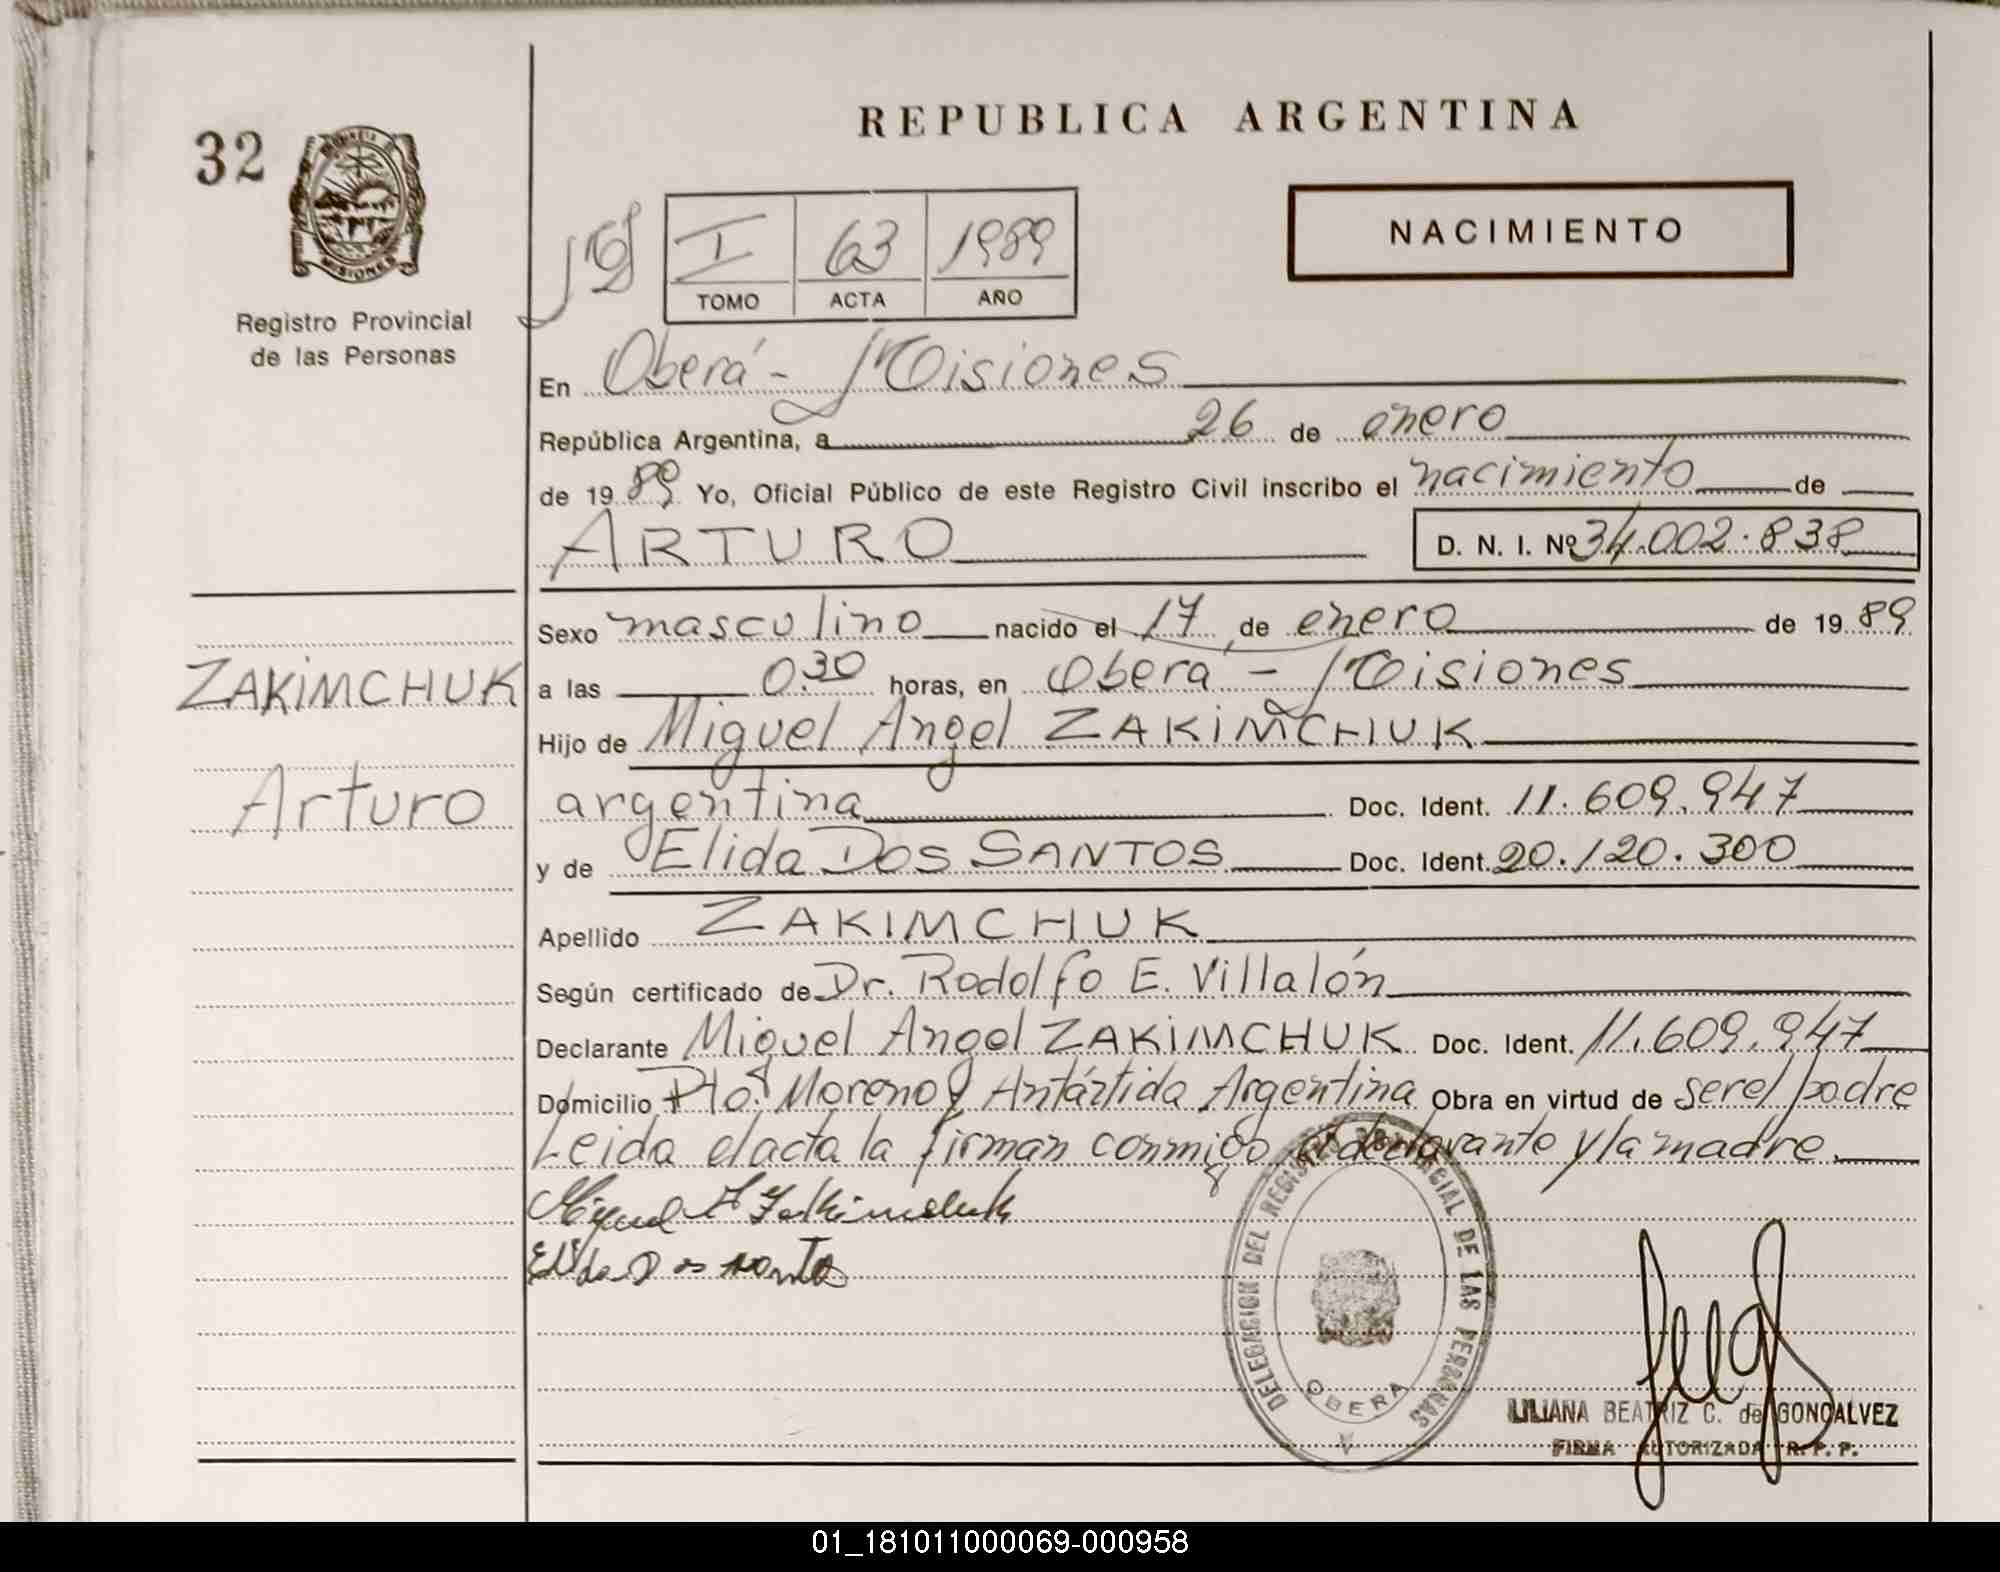 REPUBLICA ARGENTINA
32
NACIMIENTO
I 63 1989
TOMO ACTA AÑO
PROVINCIA
MISIONES
Registro Provincial
de las Personas
En Oberá - Misiones
República Argentina, a 26 de enero
de 1989 Yo, Oficial Público de este Registro Civil inscribo el nacimiento de
ARTURO D. N. I. Nº 34.002.838
Sexo masculino nacido el 17 de enero de 1989
ZAKIMCHUK
a las 0.30 horas, en Oberá - Misiones
Hijo de Miguel Angel ZAKIMCHUK
Arturo
argentina Doc. Ident. 11.609.947
y de Elida DOS SANTOS Doc. Ident. 20.120.300
Apellido ZAKIMCHUK
Según certificado de Dr. Rodolfo E. Villalón
Declarante Miguel Angel ZAKIMCHUK Doc. Ident. 11.609.947
Domicilio Pto. Moreno y Antártida Argentina Obra en virtud de ser el padre
Leida el acta la firman conmigo el declarante y la madre.
Miguel A Zakimchuk
Elida Dos santos
DELEGACION DEL REGISTRO PROVINCIAL DE LAS PERSONAS
OBERA
LILIANA BEATRIZ C. de GONCALVEZ
FIRMA AUTORIZADA R. P. P.
01_181011000069-000958